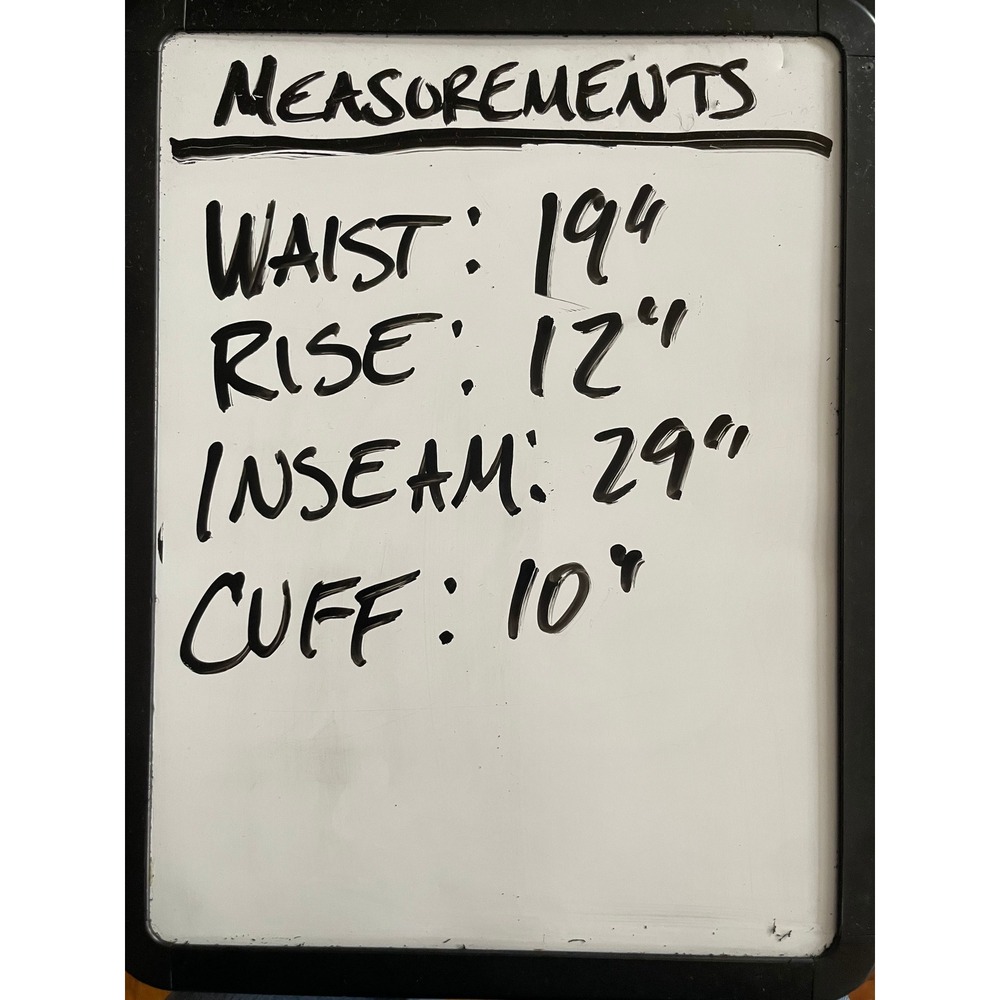 MEASUREMENTS
WAIST: 19"
RISE: 12"
INSEAM: 29"
CUFF: 10"